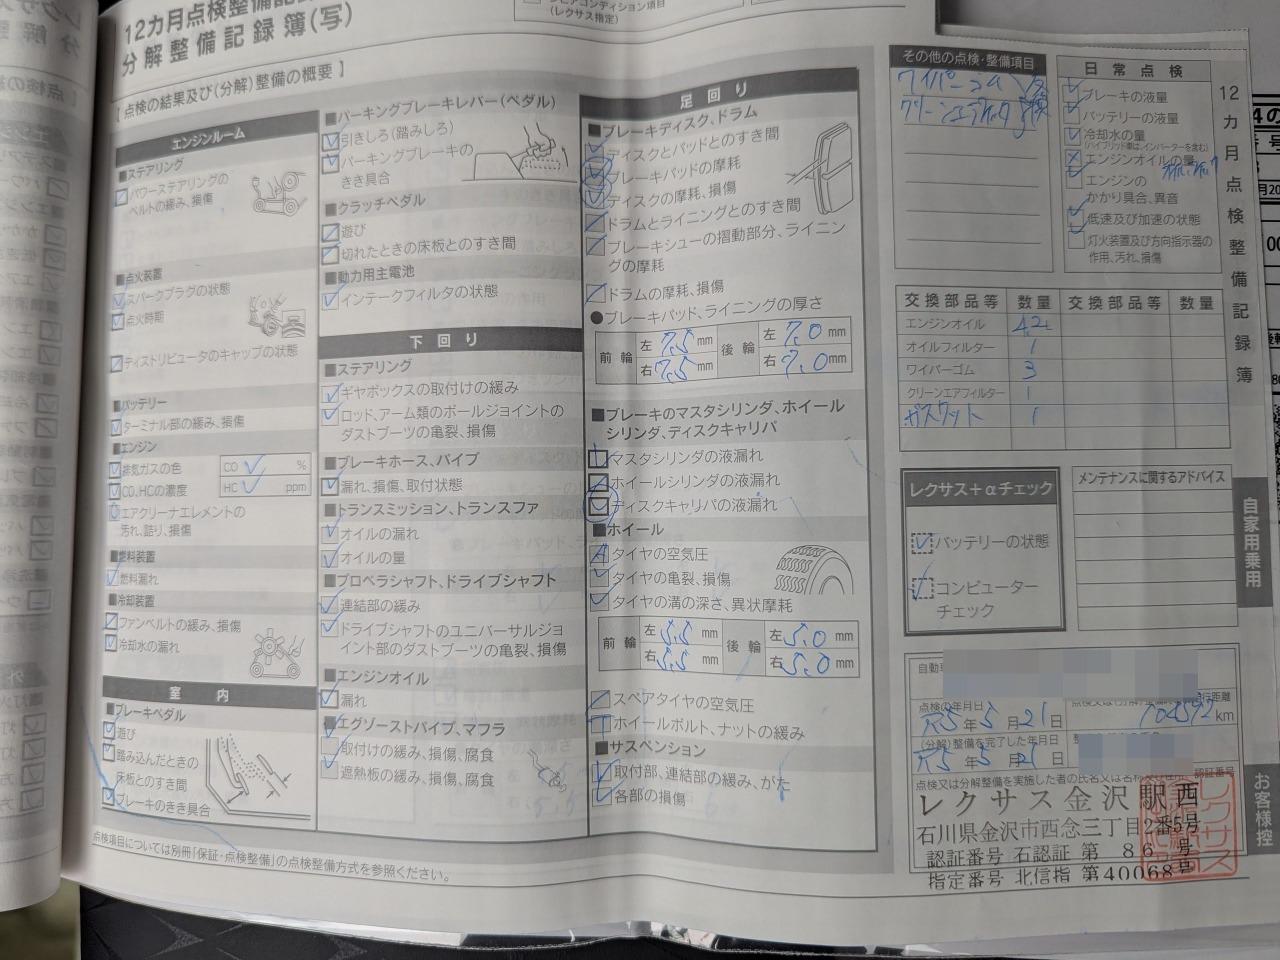 12カ月点検整備記
分解整備記録簿(写)
(レクサス指定)
【 点検の結果及び(分解)整備の概要 】
エンジンルーム
■ステアリング
パワーステアリングの
ベルトの緩み、損傷
■点火装置
スパークプラグの状態
点火時期
ディストリビュータのキャップの状態
■バッテリー
ターミナル部の緩み、損傷
■エンジン
排気ガスの色
CO %
CO、HCの濃度
HC ppm
エアクリーナエレメントの
汚れ、詰り、損傷
■燃料装置
燃料漏れ
■冷却装置
ファンベルトの緩み、損傷
冷却水の漏れ
室内
■ブレーキペダル
遊び
踏み込んだときの
床板とのすき間
ブレーキのきき具合
■パーキングブレーキレバー(ペダル)
引きしろ(踏みしろ)
パーキングブレーキの
きき具合
■クラッチペダル
遊び
切れたときの床板とのすき間
■動力用主電池
インテークフィルタの状態
下回り
■ステアリング
ギヤボックスの取付けの緩み
ロッド、アーム類のボールジョイントの
ダストブーツの亀裂、損傷
■ブレーキホース、パイプ
漏れ、損傷、取付状態
■トランスミッション、トランスファ
オイルの漏れ
オイルの量
■プロペラシャフト、ドライブシャフト
連結部の緩み
ドライブシャフトのユニバーサルジョ
イント部のダストブーツの亀裂、損傷
■エンジンオイル
漏れ
■エグゾーストパイプ、マフラ
取付けの緩み、損傷、腐食
遮熱板の緩み、損傷、腐食
足回り
■ブレーキディスク、ドラム
ディスクとパッドとのすき間
ブレーキパッドの摩耗
ディスクの摩耗、損傷
ドラムとライニングとのすき間
ブレーキシューの摺動部分、ライニン
グの摩耗
ドラムの摩耗、損傷
●ブレーキパッド、ライニングの厚さ
前輪 左 7.5 mm 後輪 左 7.0 mm
右 7.5 mm 右 7.0 mm
■ブレーキのマスタシリンダ、ホイール
シリンダ、ディスクキャリパ
マスタシリンダの液漏れ
ホイールシリンダの液漏れ
ディスクキャリパの液漏れ
■ホイール
タイヤの空気圧
タイヤの亀裂、損傷
タイヤの溝の深さ、異状摩耗
前輪 左 5.5 mm 後輪 左 5.0 mm
右 5.5 mm 右 5.0 mm
スペアタイヤの空気圧
ホイールボルト、ナットの緩み
■サスペンション
取付部、連結部の緩み、がた
各部の損傷
点検項目については別冊「保証・点検整備」の点検整備方式を参照ください。
その他の点検・整備項目
ワイパーゴム
クリーンエアフィルタ 交換
日常点検
ブレーキの液量
バッテリーの液量
冷却水の量
(ハイブリッド車は、インバーターを含む)
エンジンオイルの量
エンジンの
かかり具合、異音
低速及び加速の状態
灯火装置及び方向指示器の
作用、汚れ、損傷
12カ月点検整備記録簿
交換部品等 数量 交換部品等 数量
エンジンオイル 4.2
オイルフィルター 1
ワイパーゴム 3
クリーンエアフィルター 1
ガスケット 1
レクサス+αチェック
バッテリーの状態
コンピューター
チェック
メンテナンスに関するアドバイス
自家用乗用
自動車
点検の年月日
R5年5月21日
行距離
104592km
(分解)整備を完了した年月日
R5年5月21日
点検又は分解整備を実施した者の氏名又は名称 認証番号
レクサス金沢駅西
石川県金沢市西念三丁目2番5号
認証番号 石認証 第 86 号
指定番号 北信指 第40068号
お客様控